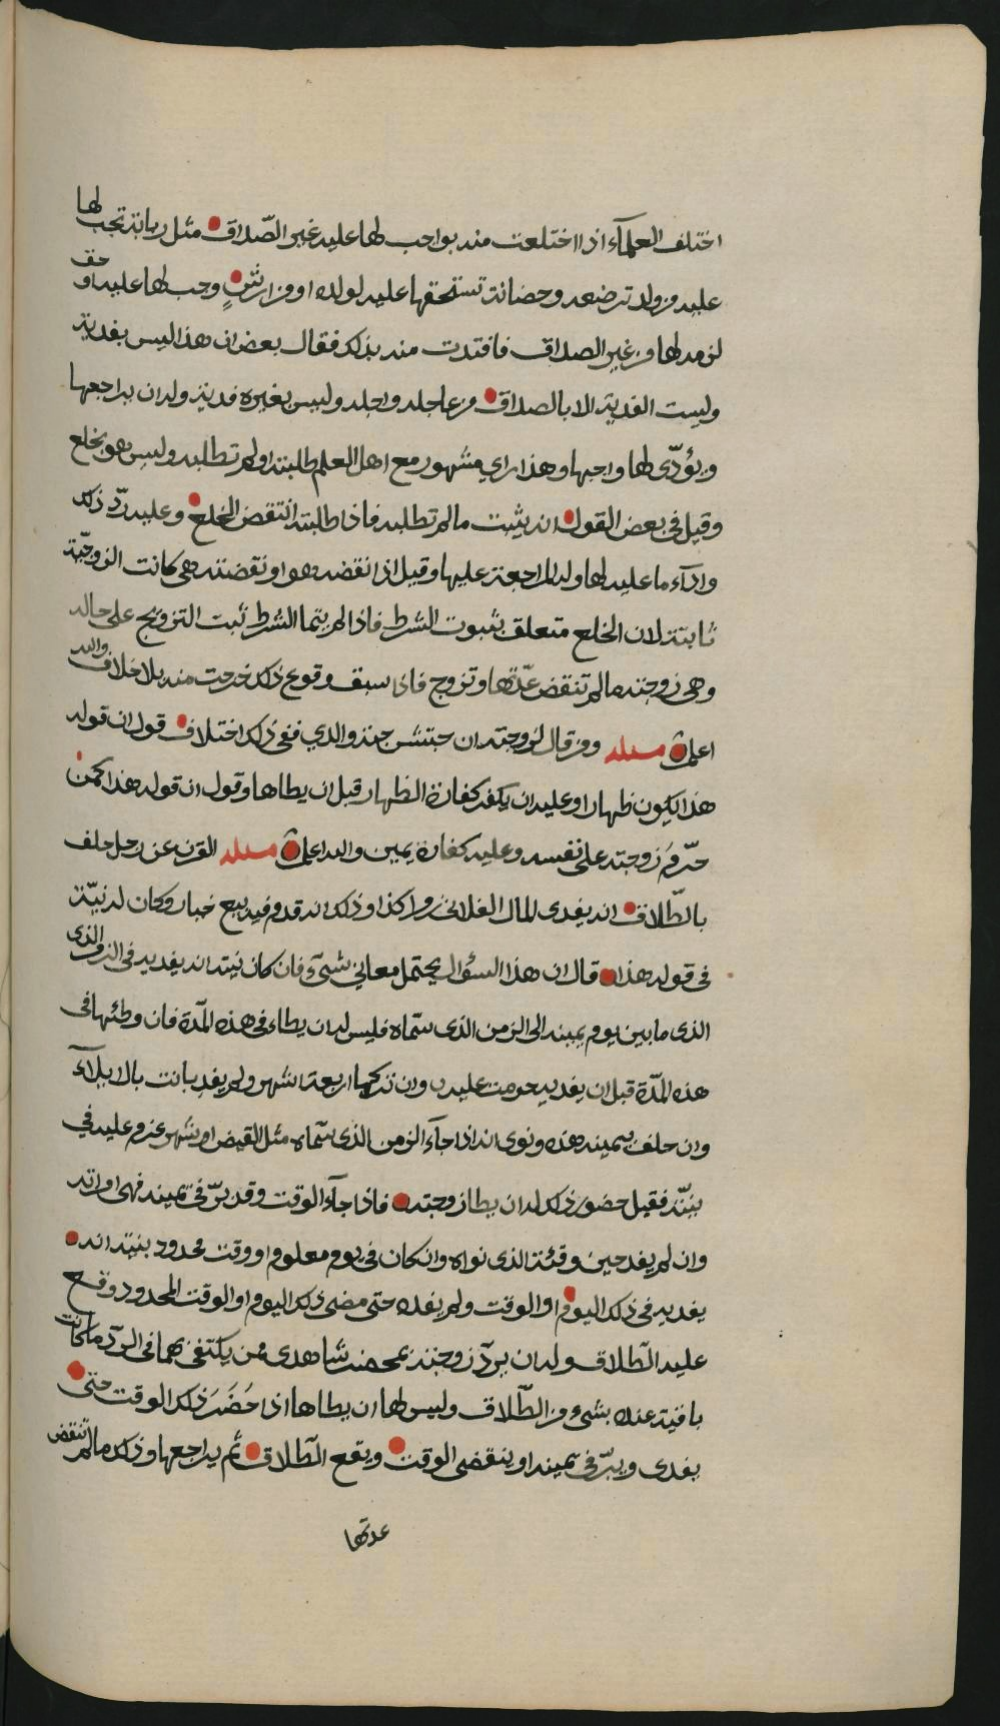 اختلف العلمآء اذا اختلعت منه بواجب لها عليه غير الصّداق مثل ربابة تجب لها
عليه من ولد ترضعه وحضانة تستحقها عليه لولده او من ارشٍ وجب لها عليه او حق
لزمه لها من غير الصداق فافتدت منه بذلك فقال بعض ان هذا ليس بفدية
وليست الفدية الا بالصداق من عاجله واجله وليس بغيره فدية وله ان يراجعها
ويؤدّى لها واجبها وهذا راي مشهور مع اهل العلم طلبته او لم تطلبه وليس هو بخلع
وقيل فى بعض القول انه يثبت مالم تطلبه فاذا طلبته انتقض الخلع وعليه ردّ ذلك
واداء ما عليه لها وله المراجعة عليها وقيل اذا نقضه هو او نقضته هى كانت الزوجيّة
ثابتة لان الخلع متعلق بثبوت الشرط فاذا لم يتما الشرط ثبت التزويج على حاله
وهى زوجته مالم تنقض عدّتها وتزوج فاذا سبق وقوع ذلك خرجت منه بلا خلاف والله
اعلم مسئلة ومن قال لزوجته ان جبتش جبت والدي ففى ذلك اختلاف قول ان قوله
هذا يكون ظهارا وعليه ان يكفر كفارة الظهار قبل ان يطاها وقول ان قوله هذا كمن
حرّم زوجته على نفسه وعليه كفارة يمين والله اعلم مسئلة القرن عن رجل حلف
بالطّلاق انه يفدى المال الفلانى من كذا وذلك انه قدم فيه بيع خيار وكان له نيّة
فى قوله هذا قال ان هذا السؤال يحتمل معاني شىّء فان كان نيته انه يفديه فى الزمن الذى
الذى ما بين يوم يمينه الى الزمن الذى سمّاه فليس له ان يطاء فى هذه المدّة فان وطئها فى
هذه المدّة قبل ان يفديه حرمت عليه وان تركها اربعة اشهر ولم يفد بانت بالايلآء
وان حلف بيمينه هذه ونوى انه اذا جآء الزمن الذى سمّاه مثل القيض او شهر عزم عليه في
نيّته فقيل حضور ذلك له ان يطا زوجته فاذا جآء الوقت وقد برّ فى يمينه فهى امراته
وان لم يفد حين وقته الذى نواه وان كان فى يوم معلوم او وقت محدود بنيته انه
يفديه فى ذلك اليوم او الوقت ولم يفده حتى مضى ذلك اليوم او الوقت المحدود وقع
عليه الطّلاق وله ان يردّ زوجته بمحضر شاهدى ممن يكتفى بهما فى الردّ ما كانت
باقية عنده بشىء من الطّلاق وليس لها ان يطاها اذا حَضَرَ ذلك الوقت حتى
يفدى ويبرّ فى يمينه او ينقضى الوقت ويقع الطّلاق ثم يراجعها وذلك مالم تنقض
عدتها